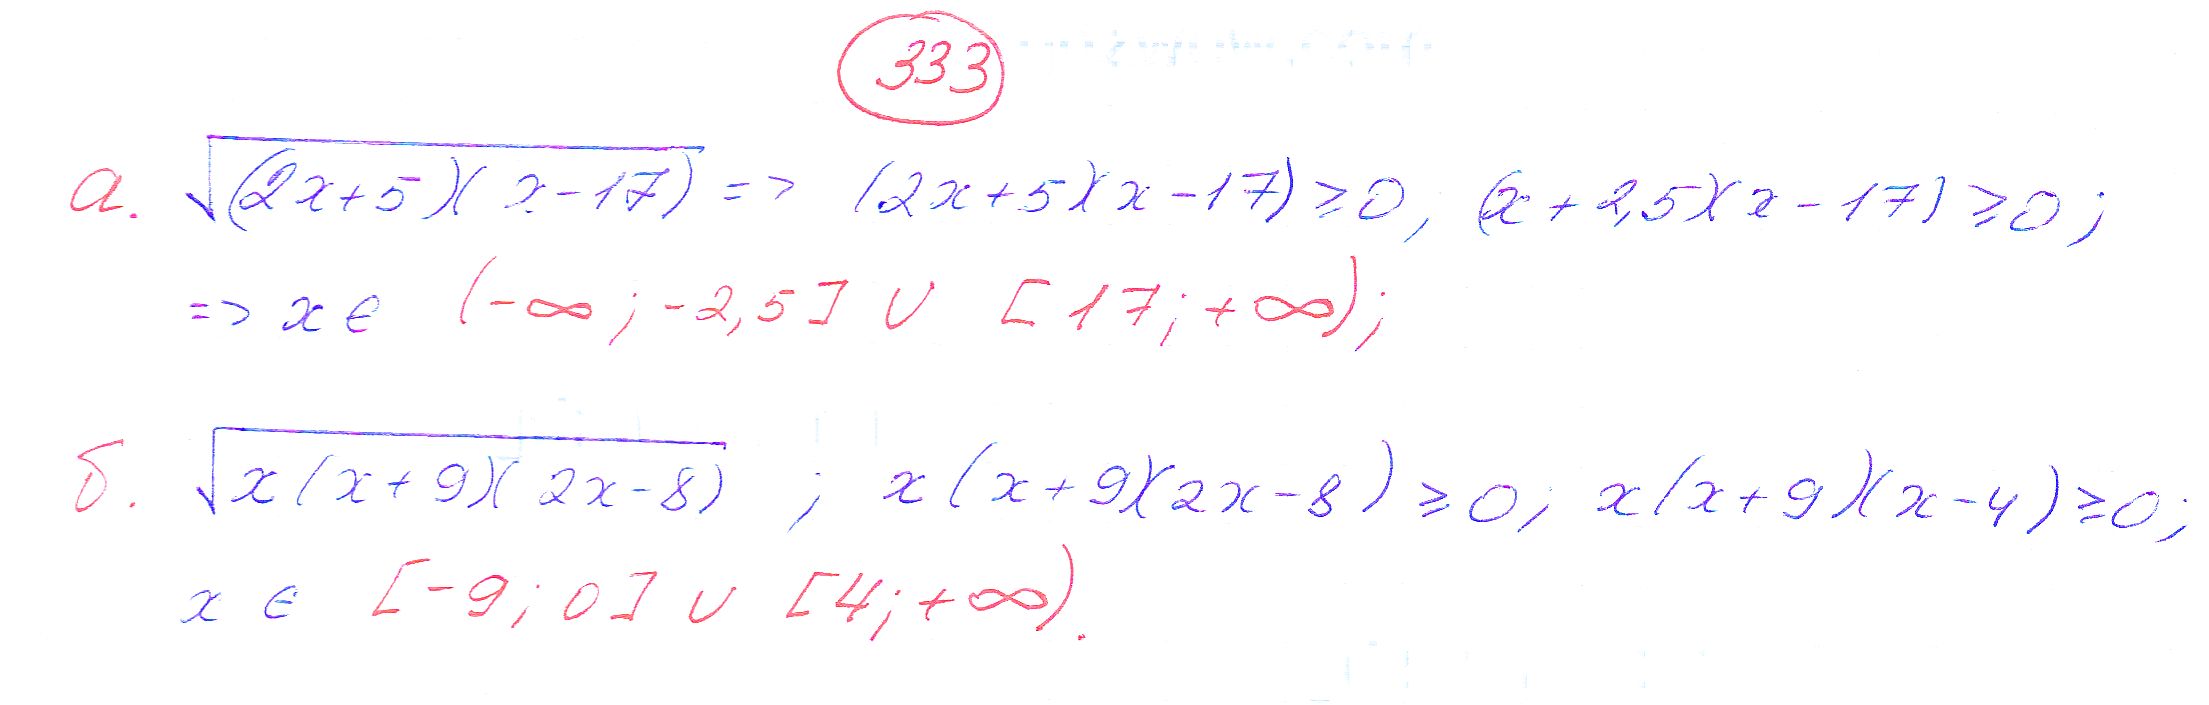 333
а. √(2x+5)(x-17) => (2x+5)(x-17)≥0, (x+2,5)(x-17)≥0;
=> x ∈ (-∞; -2,5] ∪ [17; +∞);
б. √x(x+9)(2x-8) ; x(x+9)(2x-8)≥0; x(x+9)(x-4)≥0;
x ∈ [-9; 0] ∪ [4; +∞).